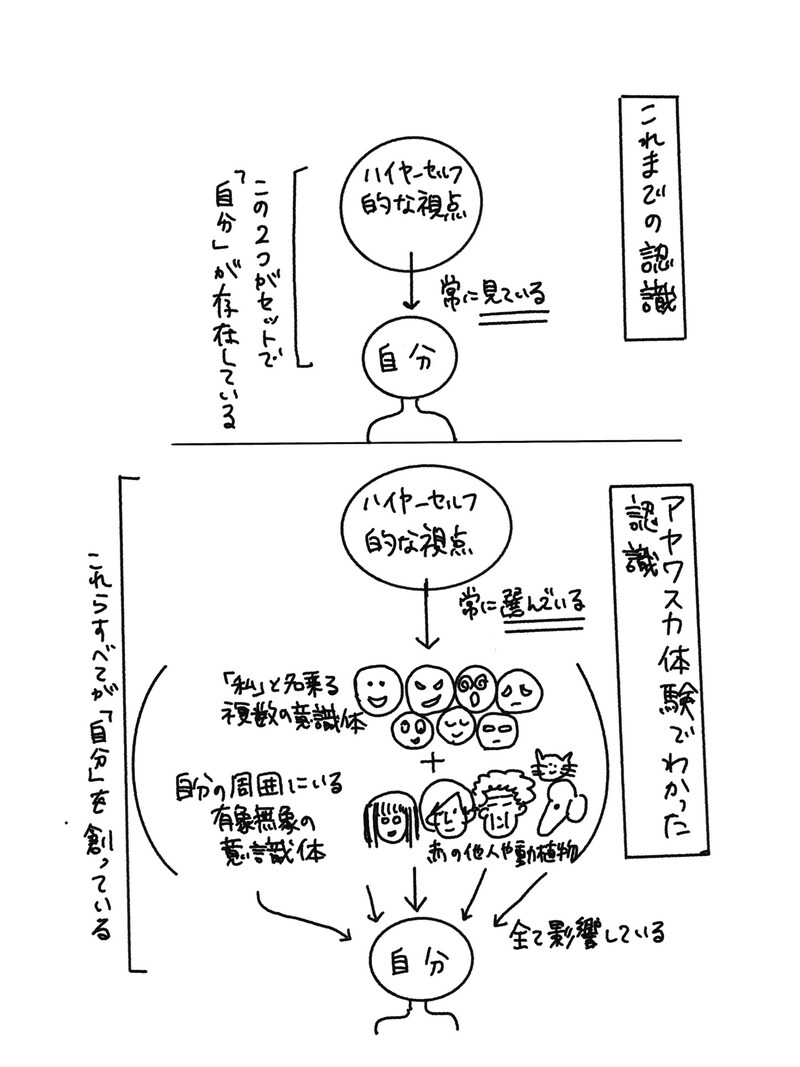 これまでの認識
ハイヤーセルフ
的な視点
常に見ている
自分
この2つがセットで
「自分」が存在している
アヤワスカ体験でわかった
認識
ハイヤーセルフ
的な視点
常に選んでいる
「私」と名乗る
複数の意識体
+
自分の周囲にいる
有象無象の
意識体
赤の他人や動植物
全て影響している
自分
これらすべてが「自分」を創っている